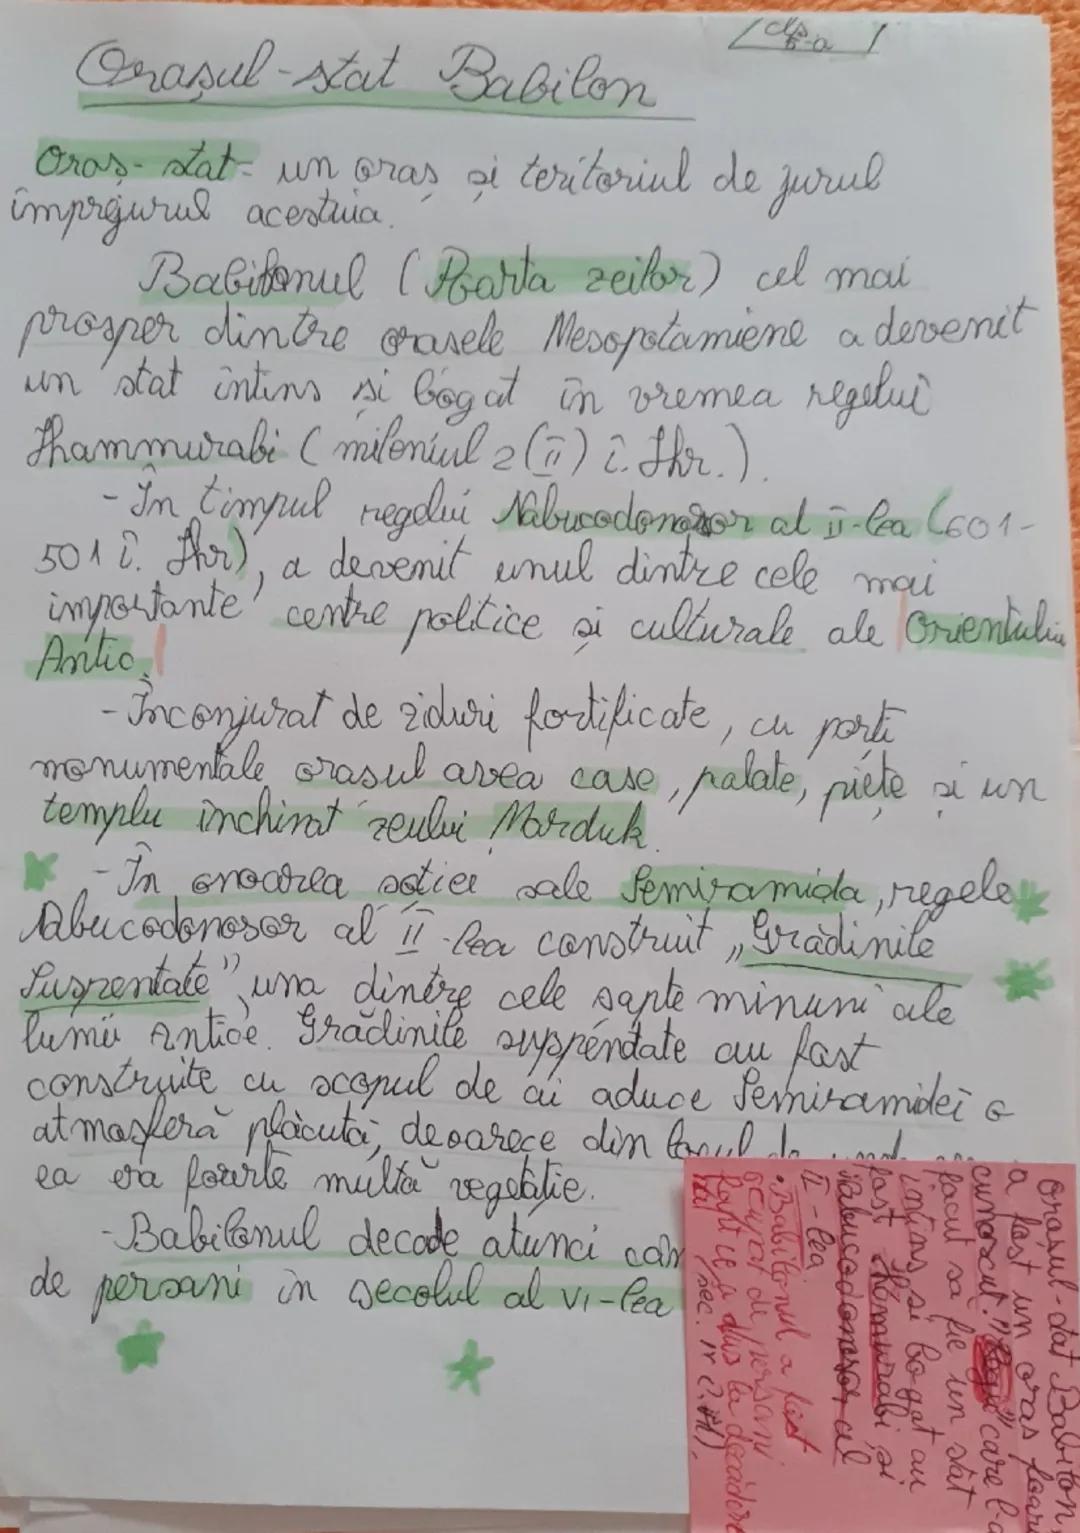 cls
5-a
Orașul-stat Babilon
Oraș-stat- un oraș și teritoriul de jurul
împrejurul acestuia.
Babilonul (Poarta zeilor) cel mai
prosper dintre orasele Mesopotamiene a devenit
un stat intins si bogat în vremea regelui
Hammurabi (mileniul 2 (II) î. Hr.).
-În timpul regelui Nabucodonosor al II-lea (601-
501 î. Hr), a devenit unul dintre cele mai
importante centre politice și culturale ale Orientului
Antic.
-Înconjurat de ziduri fortificate, cu porti
monumentale orasul avea case, palate, piețe și un
templu închinat zeului Marduk.
-În onoarea soției sale Semiramida, regele
Nabucodonosor al II-lea construit „Grădinile
Suspentate" una dintre cele sapte minuni ale
lumii Antice. Grădinile suspendate au fost
construite cu scopul de ai aduce Semiramidei o
atmosferă plăcută, deoarece din locul de unde
ea era foarte multă vegetatie.
-Babilonul decade atunci cân
de persani în secolul al VI-lea
orasul-stat Babilon,
a fost un oras foar
cunoscut. "Regii" care l-a
facut sa fie un stat
intins si bogat au
fost Hammurabi si
Nabucodonosor al
II-lea.
•Babilonul a fost
ocupat de persani
fapt ce a dus la decădere
sa( sec. IV î.H).